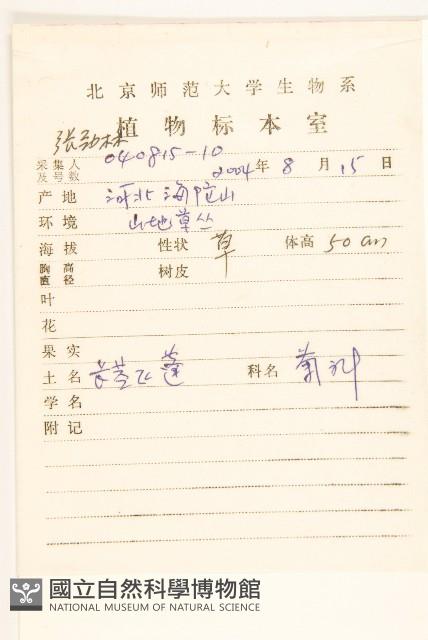 北京师范大学生物系
植物标本室
张劲林
采集人及号数 040815-10 2004年 8月 15日
产地 河北海陀山
环境 山地草丛
海拔 性状 草 体高 50 cm
胸高直径 树皮
叶
花
果实
土名 长茎飞蓬 科名 菊科
学名
附记
國立自然科學博物館
NATIONAL MUSEUM OF NATURAL SCIENCE